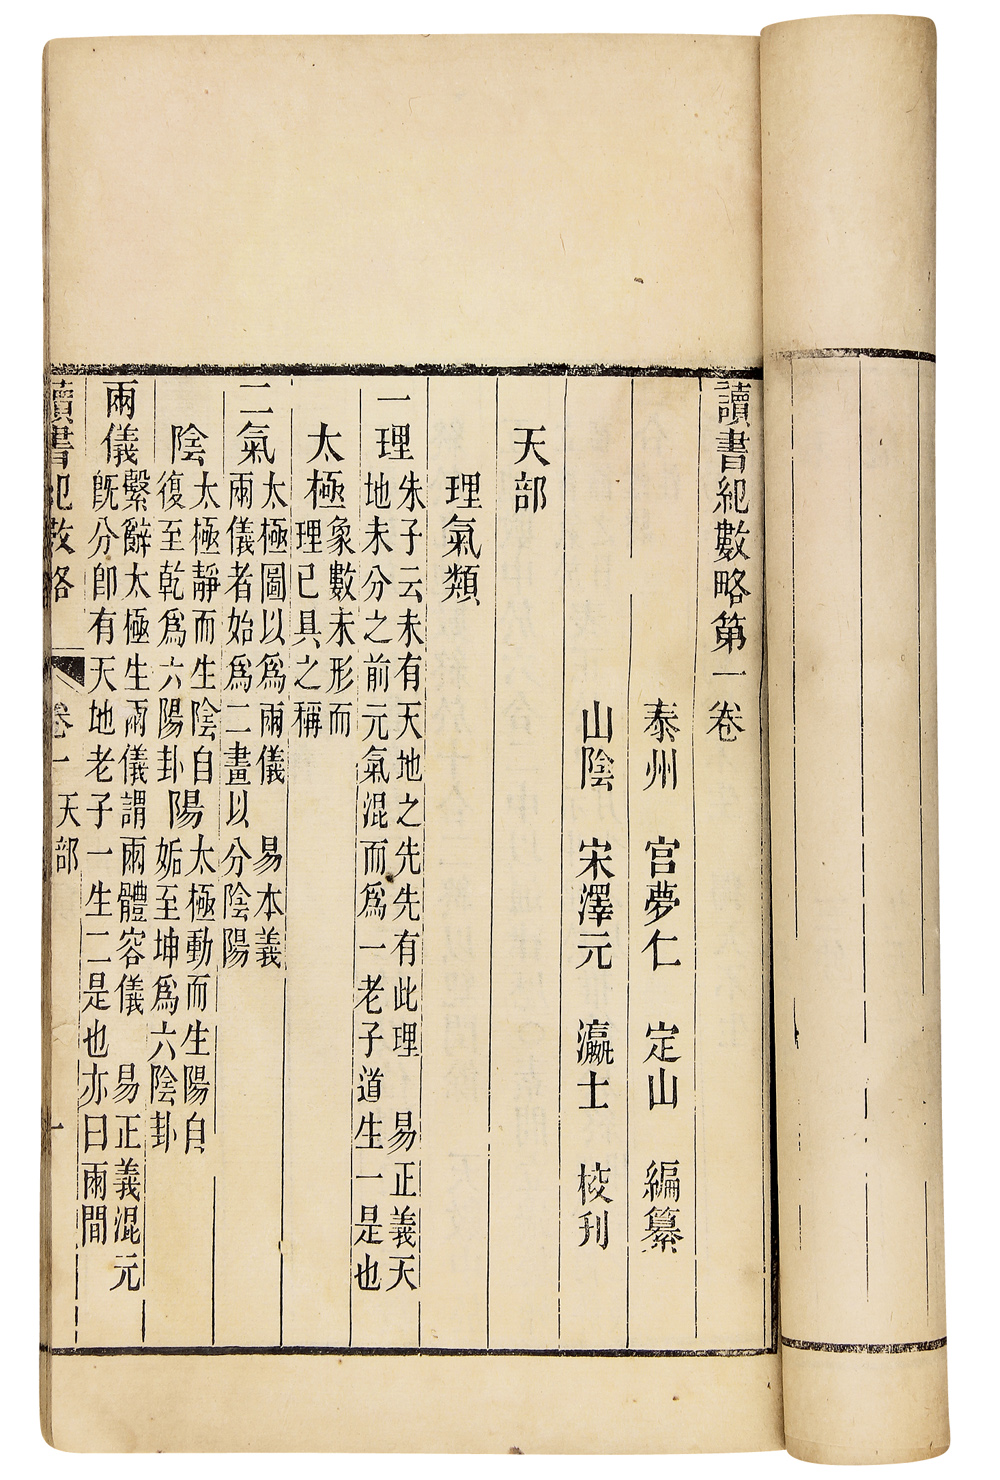 讀書紀數略第一卷
泰州 宮夢仁 定山 編纂
山陰 宋澤元 瀛士 校刋
天部
理氣類
一理 朱子云未有天地之先先有此理 易正義天
地未分之前元氣混而爲一老子道生一是也
太極 象數未形而
理已具之稱
二氣 太極圖以爲兩儀 易本義
兩儀者始爲二畫以分陰陽
陰 太極靜而生陰自
復至乾爲六陽卦
陽 太極動而生陽自
姤至坤爲六陰卦
兩儀 繫辭太極生兩儀謂兩體容儀 易正義混元
旣分卽有天地老子一生二是也亦曰兩間
讀書紀數略 卷一 天部 一